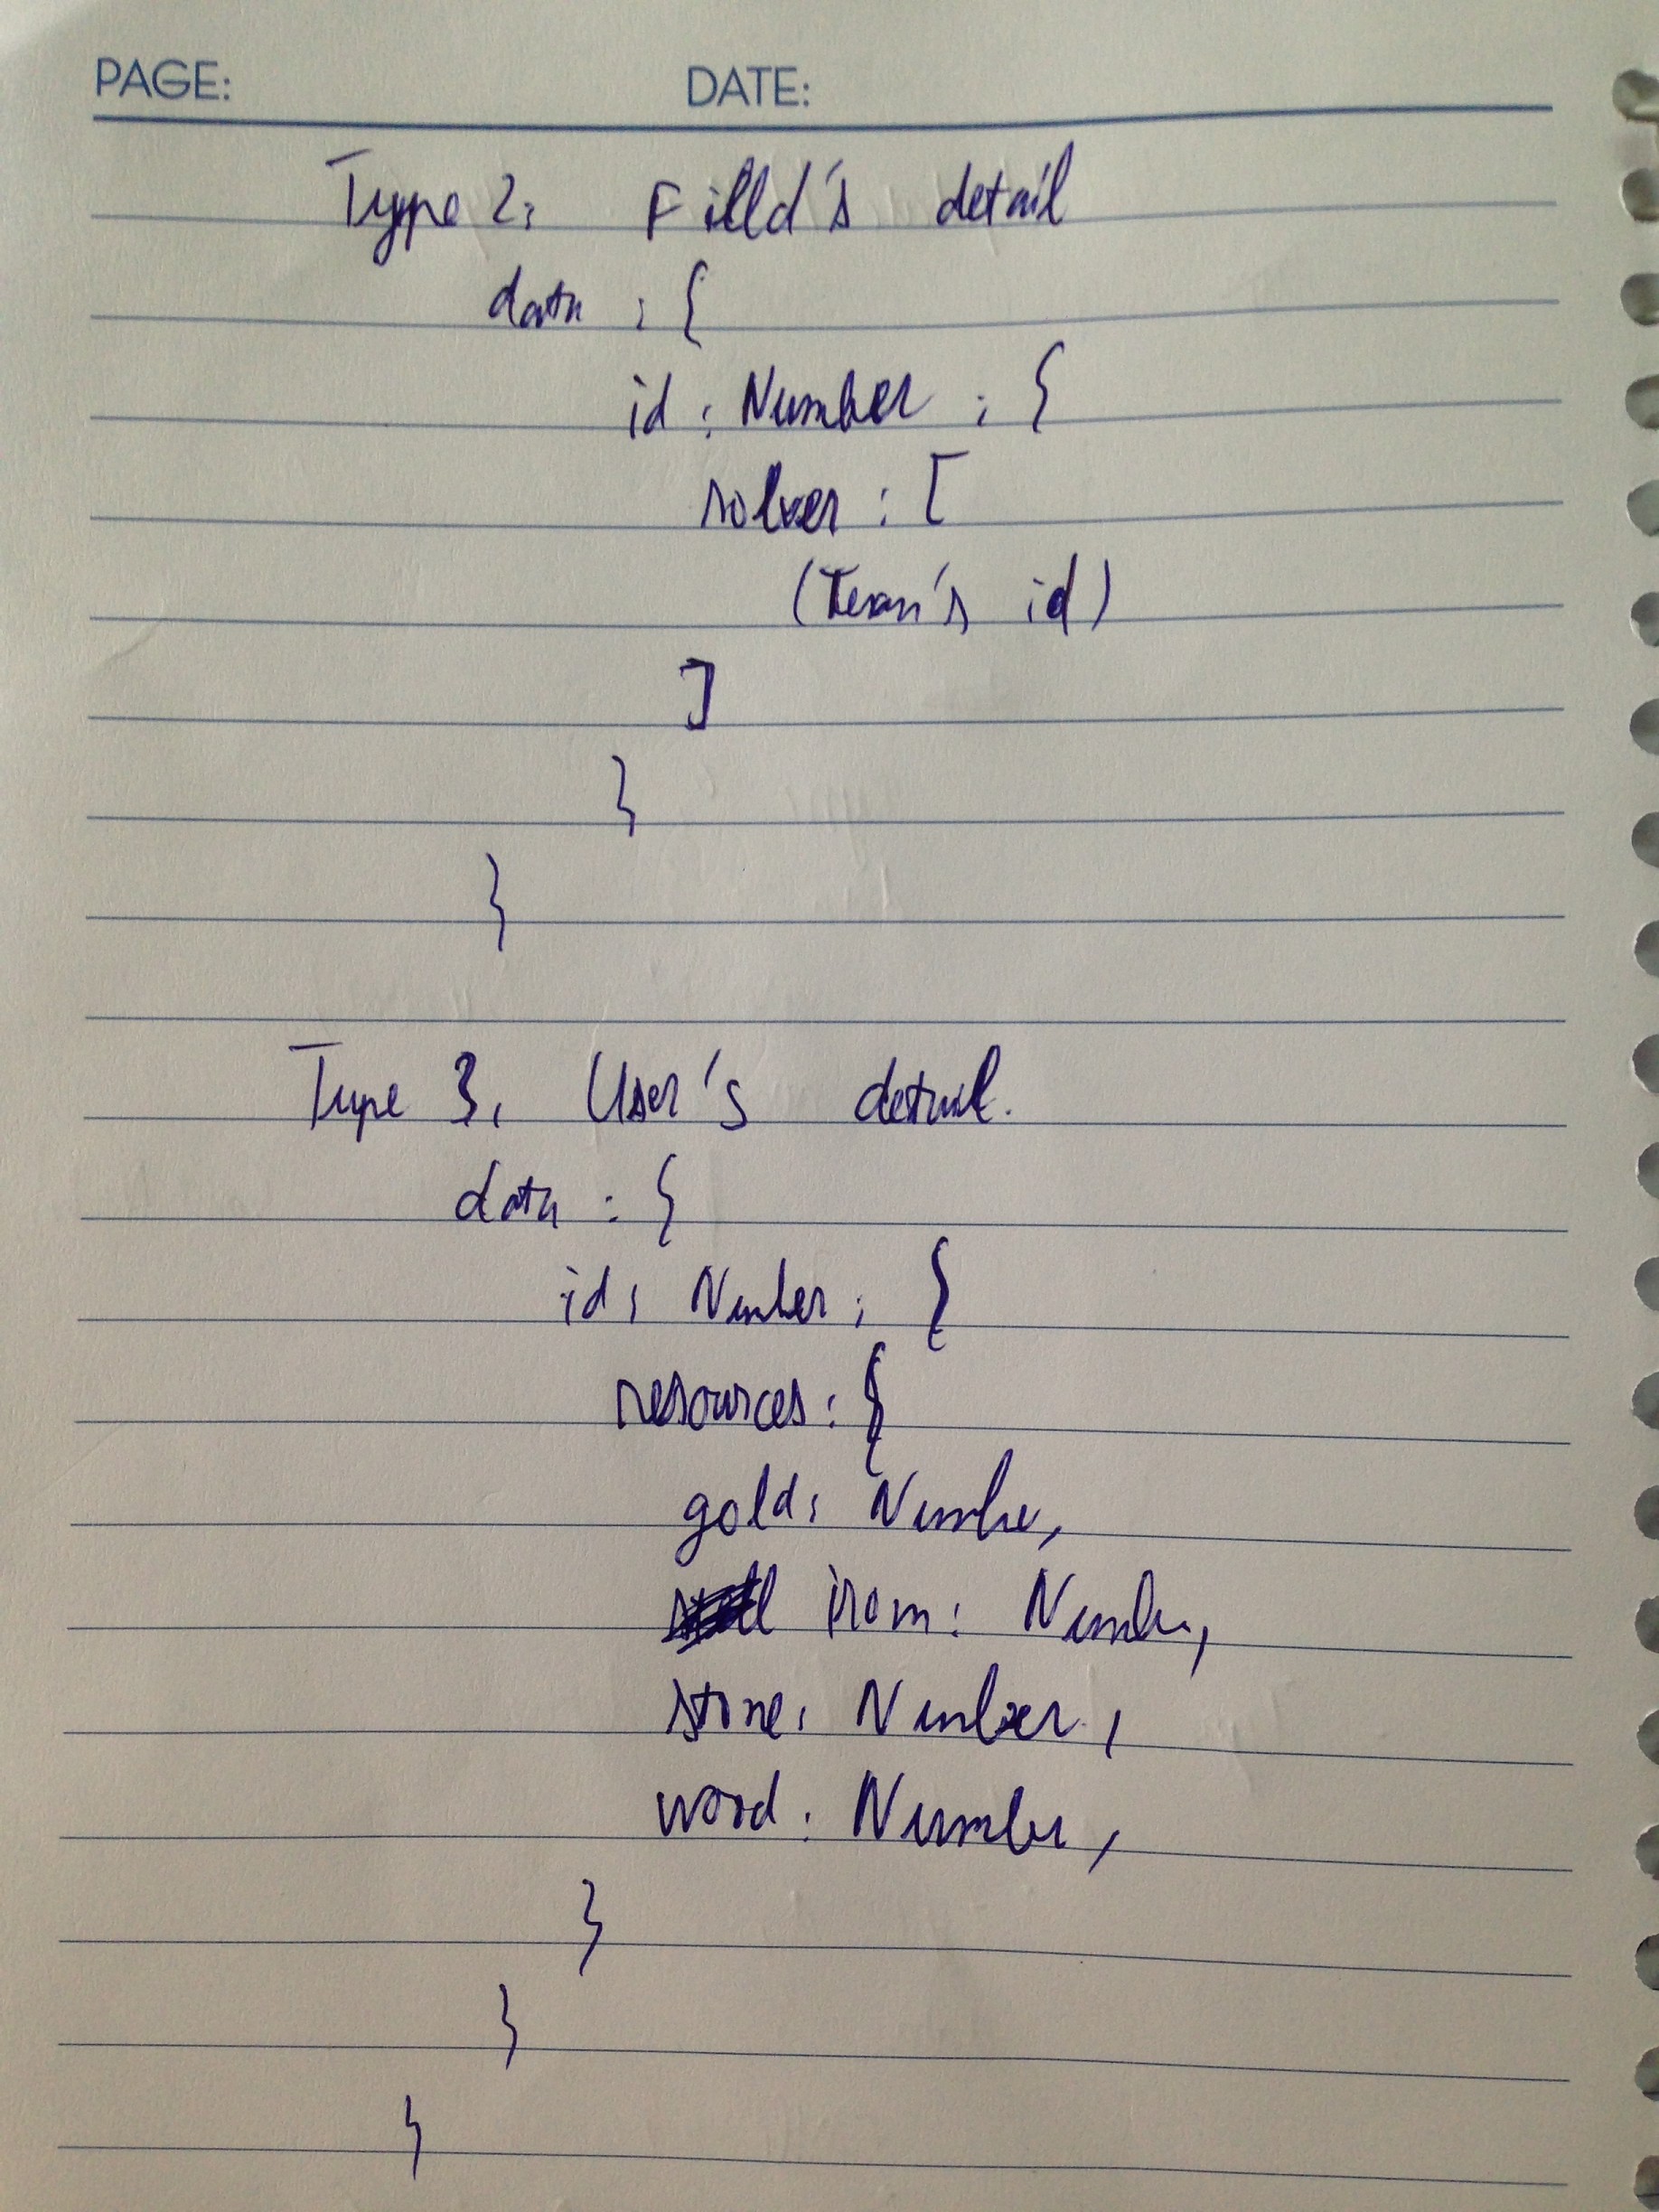 PAGE: DATE:
Type 2: Filld's detail
data : {
id : Number : {
solver : [
(Team's id)
]
}
}
Type 3: User's detail.
data : {
id : Number : {
resources : {
gold : Number,
iron : Number,
stone : Number,
wood : Number,
}
}
}